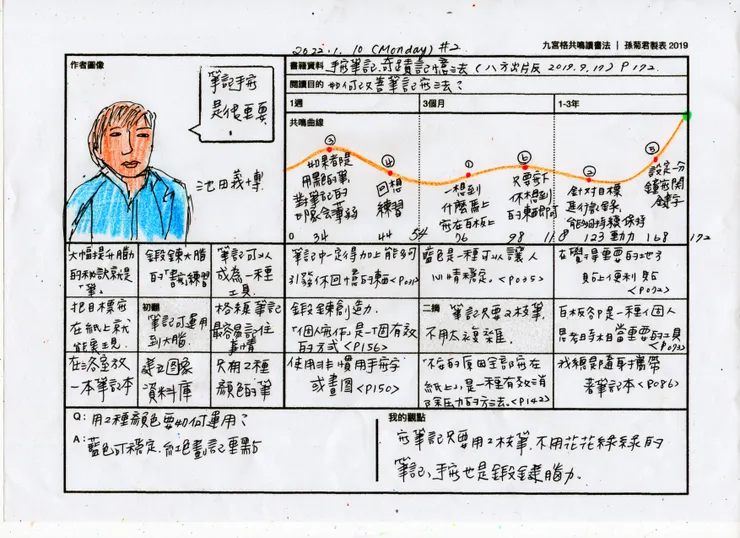 2022.1.10 (Monday) #2
九宮格共鳴讀書法｜孫菊君製表 2019
作者圖像
筆記手寫
是很重要
池田義博
書籍資料 手寫筆記奇蹟記憶法（八方出版 2019.9.19）P192
閱讀目的 如何改善筆記寫法？
1週
3個月
1-3年
共鳴曲線
③
如果都是
用黑色的筆
對筆記的
印象會薄弱
④
回想
練習
①
一想到
什麼馬上
寫在白板上
⑥
只要寫下
你想到
的東西即可
②
針對目標
進行記錄,
能夠持續保持
動力
⑤
設定一分
鐘寫關
鍵字
0 34 44 54 76 98 118 123 168 192
大幅提升腦力
的秘訣就是
「筆」
鍛鍊大腦
的「書寫練習」
筆記可以
成為一種
工具
把目標寫
在紙上就
能實現
初翻
筆記可運用
到大腦
格線筆記
最容易記住
事情
在浴室放
一本筆記本
建立圖像
資料庫
只用2種
顏色的筆
筆記中一定得加上能夠
引發你回憶的東西
藍色是一種可以讓人
心情穩定。<P035>
在覺得重要的地方
貼上便利貼
鍛鍊創造力
「個人解釋」是一個有效
的方式<P156>
二摘
筆記只要2枝筆
不用太複雜
白板於P是一種個人
思考時相當重要的工具
<P072>
使用非慣用手寫字
或畫圖<P150>
「不安的原因全部寫在
紙上」是一種有效消
除壓力的方法。<P142>
我總即隨身攜帶
著筆記本<P086>
Q: 用2種顏色要如何運用？
A: 藍色可穩定,紅色畫記重點
我的觀點
寫筆記只要用2枝筆,不用花花綠綠的
筆記,手寫也是鍛鍊腦力。